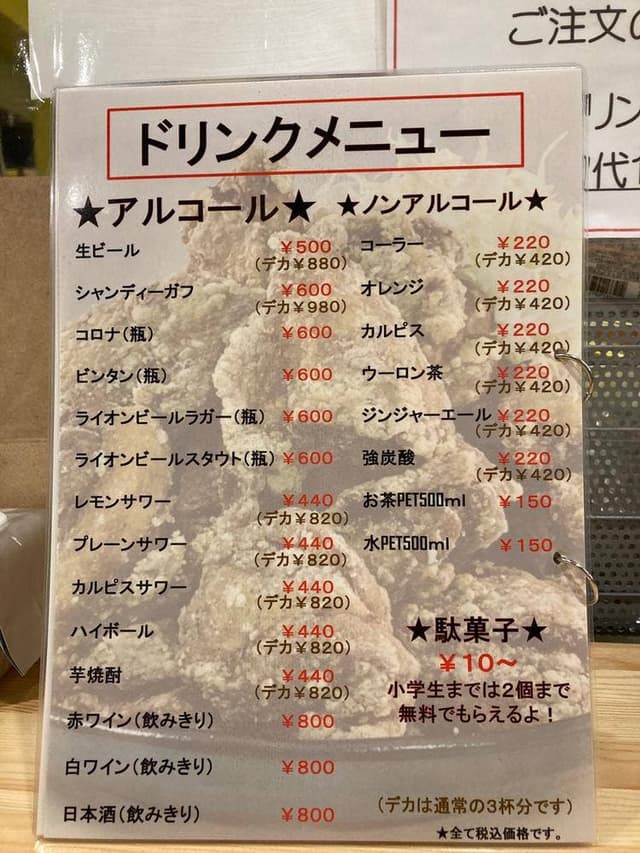 ご注文の
リン
代
ドリンクメニュー
★アルコール★
生ビール ¥500
(デカ¥880)
シャンディーガフ ¥600
(デカ¥980)
コロナ(瓶) ¥600
ビンタン(瓶) ¥600
ライオンビールラガー(瓶) ¥600
ライオンビールスタウト(瓶) ¥600
レモンサワー ¥440
(デカ¥820)
プレーンサワー ¥440
(デカ¥820)
カルピスサワー ¥440
(デカ¥820)
ハイボール ¥440
(デカ¥820)
芋焼酎 ¥440
(デカ¥820)
赤ワイン(飲みきり) ¥800
白ワイン(飲みきり) ¥800
日本酒(飲みきり) ¥800
★ノンアルコール★
コーラー ¥220
(デカ¥420)
オレンジ ¥220
(デカ¥420)
カルピス ¥220
(デカ¥420)
ウーロン茶 ¥220
(デカ¥420)
ジンジャーエール ¥220
(デカ¥420)
強炭酸 ¥220
(デカ¥420)
お茶PET500ml ¥150
水PET500ml ¥150
★駄菓子★
¥10～
小学生までは2個まで
無料でもらえるよ！
(デカは通常の3杯分です)
★全て税込価格です。